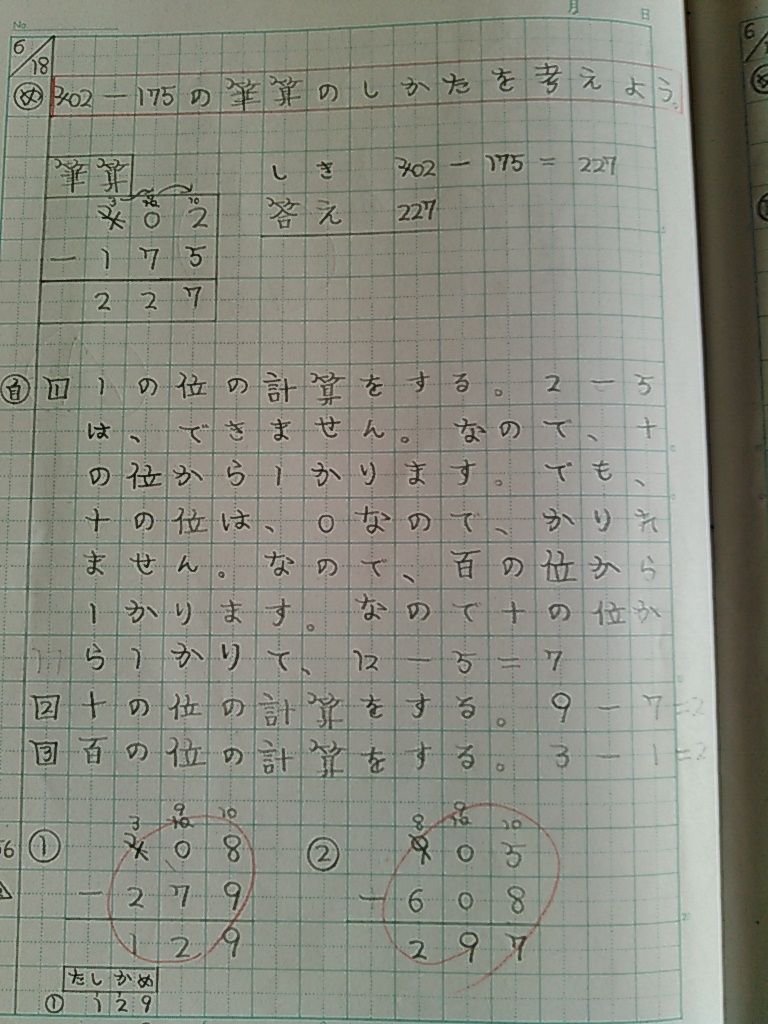 No.
月 日
6/18
め 402-175の筆算のしかたを考えよう。
筆算
しき 402-175=227
3 10 10
402
答え 227
-175
227
自 1 1の位の計算をする。2-5
は、できません。なので、十
の位から1かります。でも、
十の位は、0なので、かりれ
ません。なので、百の位から
1かります。なので十の位か
ら1かりて、12-5=7
2 十の位の計算をする。9-7=2
3 百の位の計算をする。3-1=2
9
3 10 10
① 408
-279
129
9
8 10 10
② 905
-608
297
たしかめ
① 129